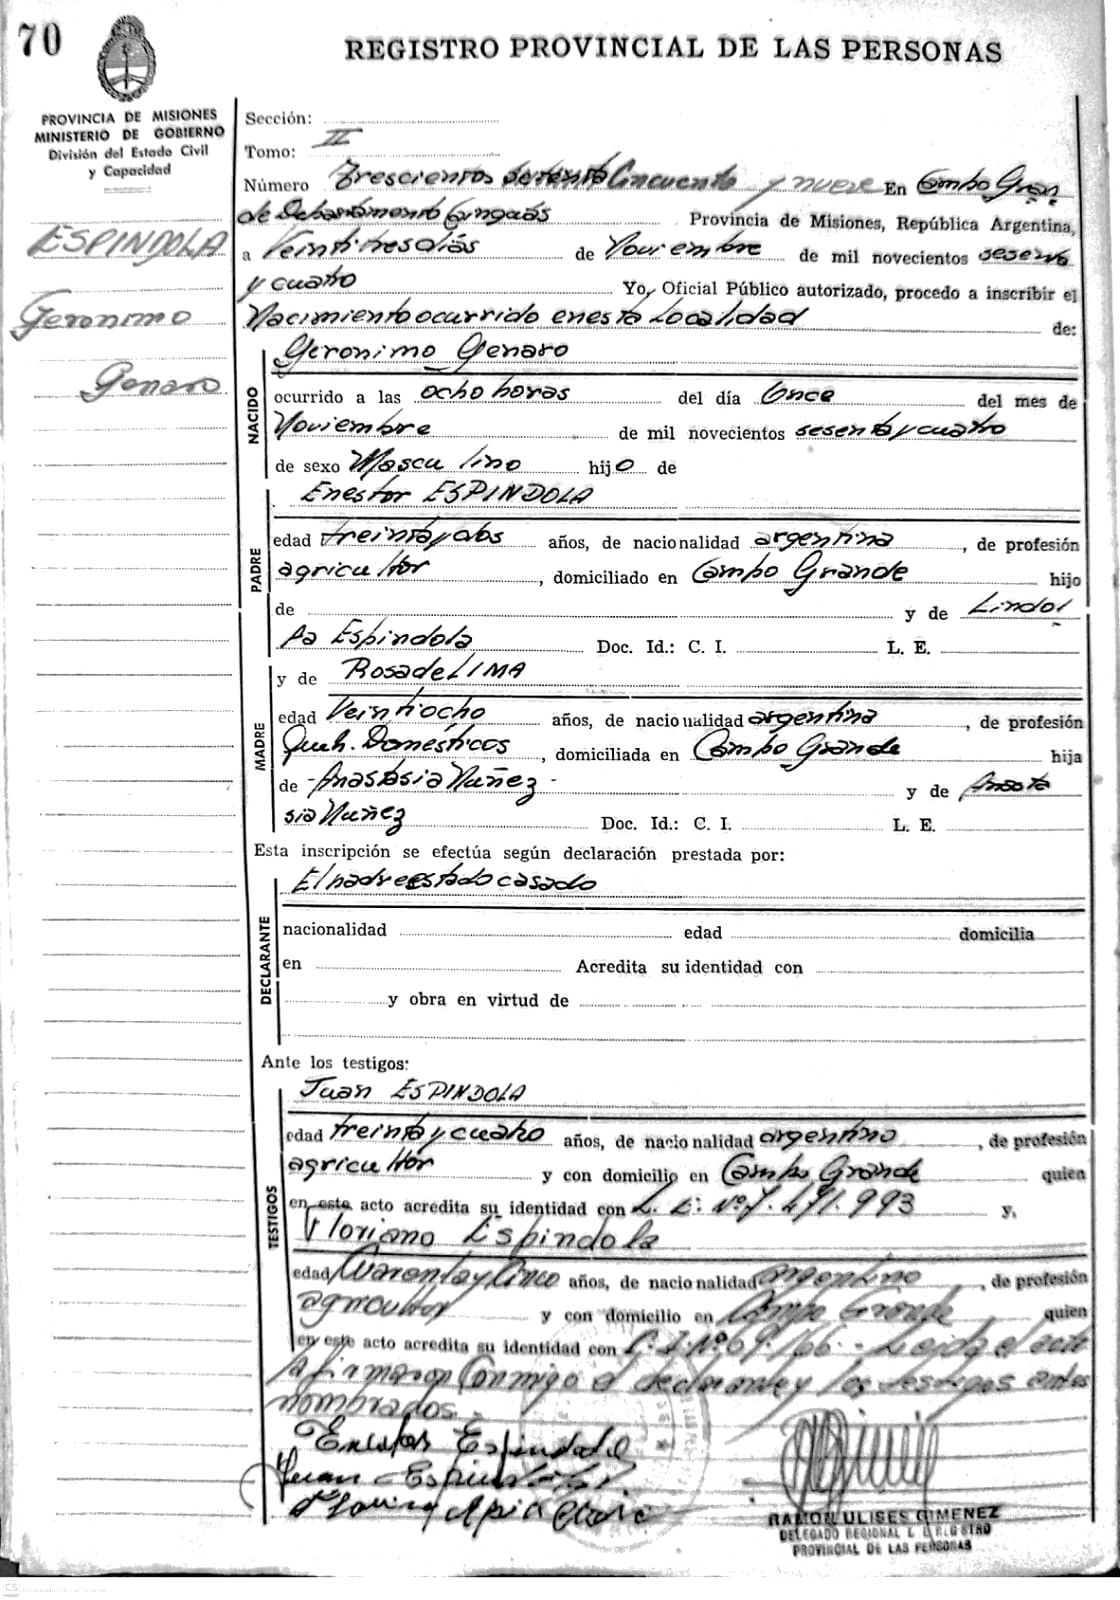 70
REGISTRO PROVINCIAL DE LAS PERSONAS
PROVINCIA DE MISIONES
MINISTERIO DE GOBIERNO
División del Estado Civil
y Capacidad
ESPINDOLA
Geronimo
Genaro
Sección:
Tomo: II
Número Trescientos setenta Cincuenta y nueve En Campo Gran
de Departamento Cainguás Provincia de Misiones, República Argentina,
a Veintitres dias de Noviembre de mil novecientos sesenta
y cuatro Yo, Oficial Público autorizado, procedo a inscribir el
Nacimiento ocurrido en esta Localidad de:
NACIDO
Geronimo Genaro
ocurrido a las ocho horas del día Once del mes de
Noviembre de mil novecientos sesenta y cuatro
de sexo Mascu lino hijo de
PADRE
Enestor ESPINDOLA
edad treinta y dos años, de nacionalidad argentina, de profesión
agricultor, domiciliado en Campo Grande hijo
de y de Lindol
fa Espindola Doc. Id.: C. I. L. E.
MADRE
y de Rosa de LIMA
edad Veintiocho años, de nacionalidad argentina, de profesión
Queh. Domésticos, domiciliada en Campo Grande hija
de - Anastasia Nuñez - y de Anasta
sia Nuñez Doc. Id.: C. I. L. E.
Esta inscripción se efectúa según declaración prestada por:
DECLARANTE
El padre estado casado
nacionalidad edad domicilia
en Acredita su identidad con
y obra en virtud de
Ante los testigos:
TESTIGOS
Juan ESPINDOLA
edad treinta y cuatro años, de nacionalidad argentino, de profesión
agricultor y con domicilio en Campo Grande quien
en este acto acredita su identidad con L. E: Nº 7.471.993 y,
Floriano Espindola
edad Cuarenta y Cinco años, de nacionalidad argentino, de profesión
agricultor y con domicilio en Campo Grande quien
en este acto acredita su identidad con C. I. Nº 69.166.- Leida el acta
la firmaron Conmigo el declarante y los testigos antes
nombrados.-
Espindola
Juan Espindola
RAMON ULISES GIMENEZ
DELEGADO REGIONAL REGISTRO
PROVINCIAL DE LAS PERSONAS
CS